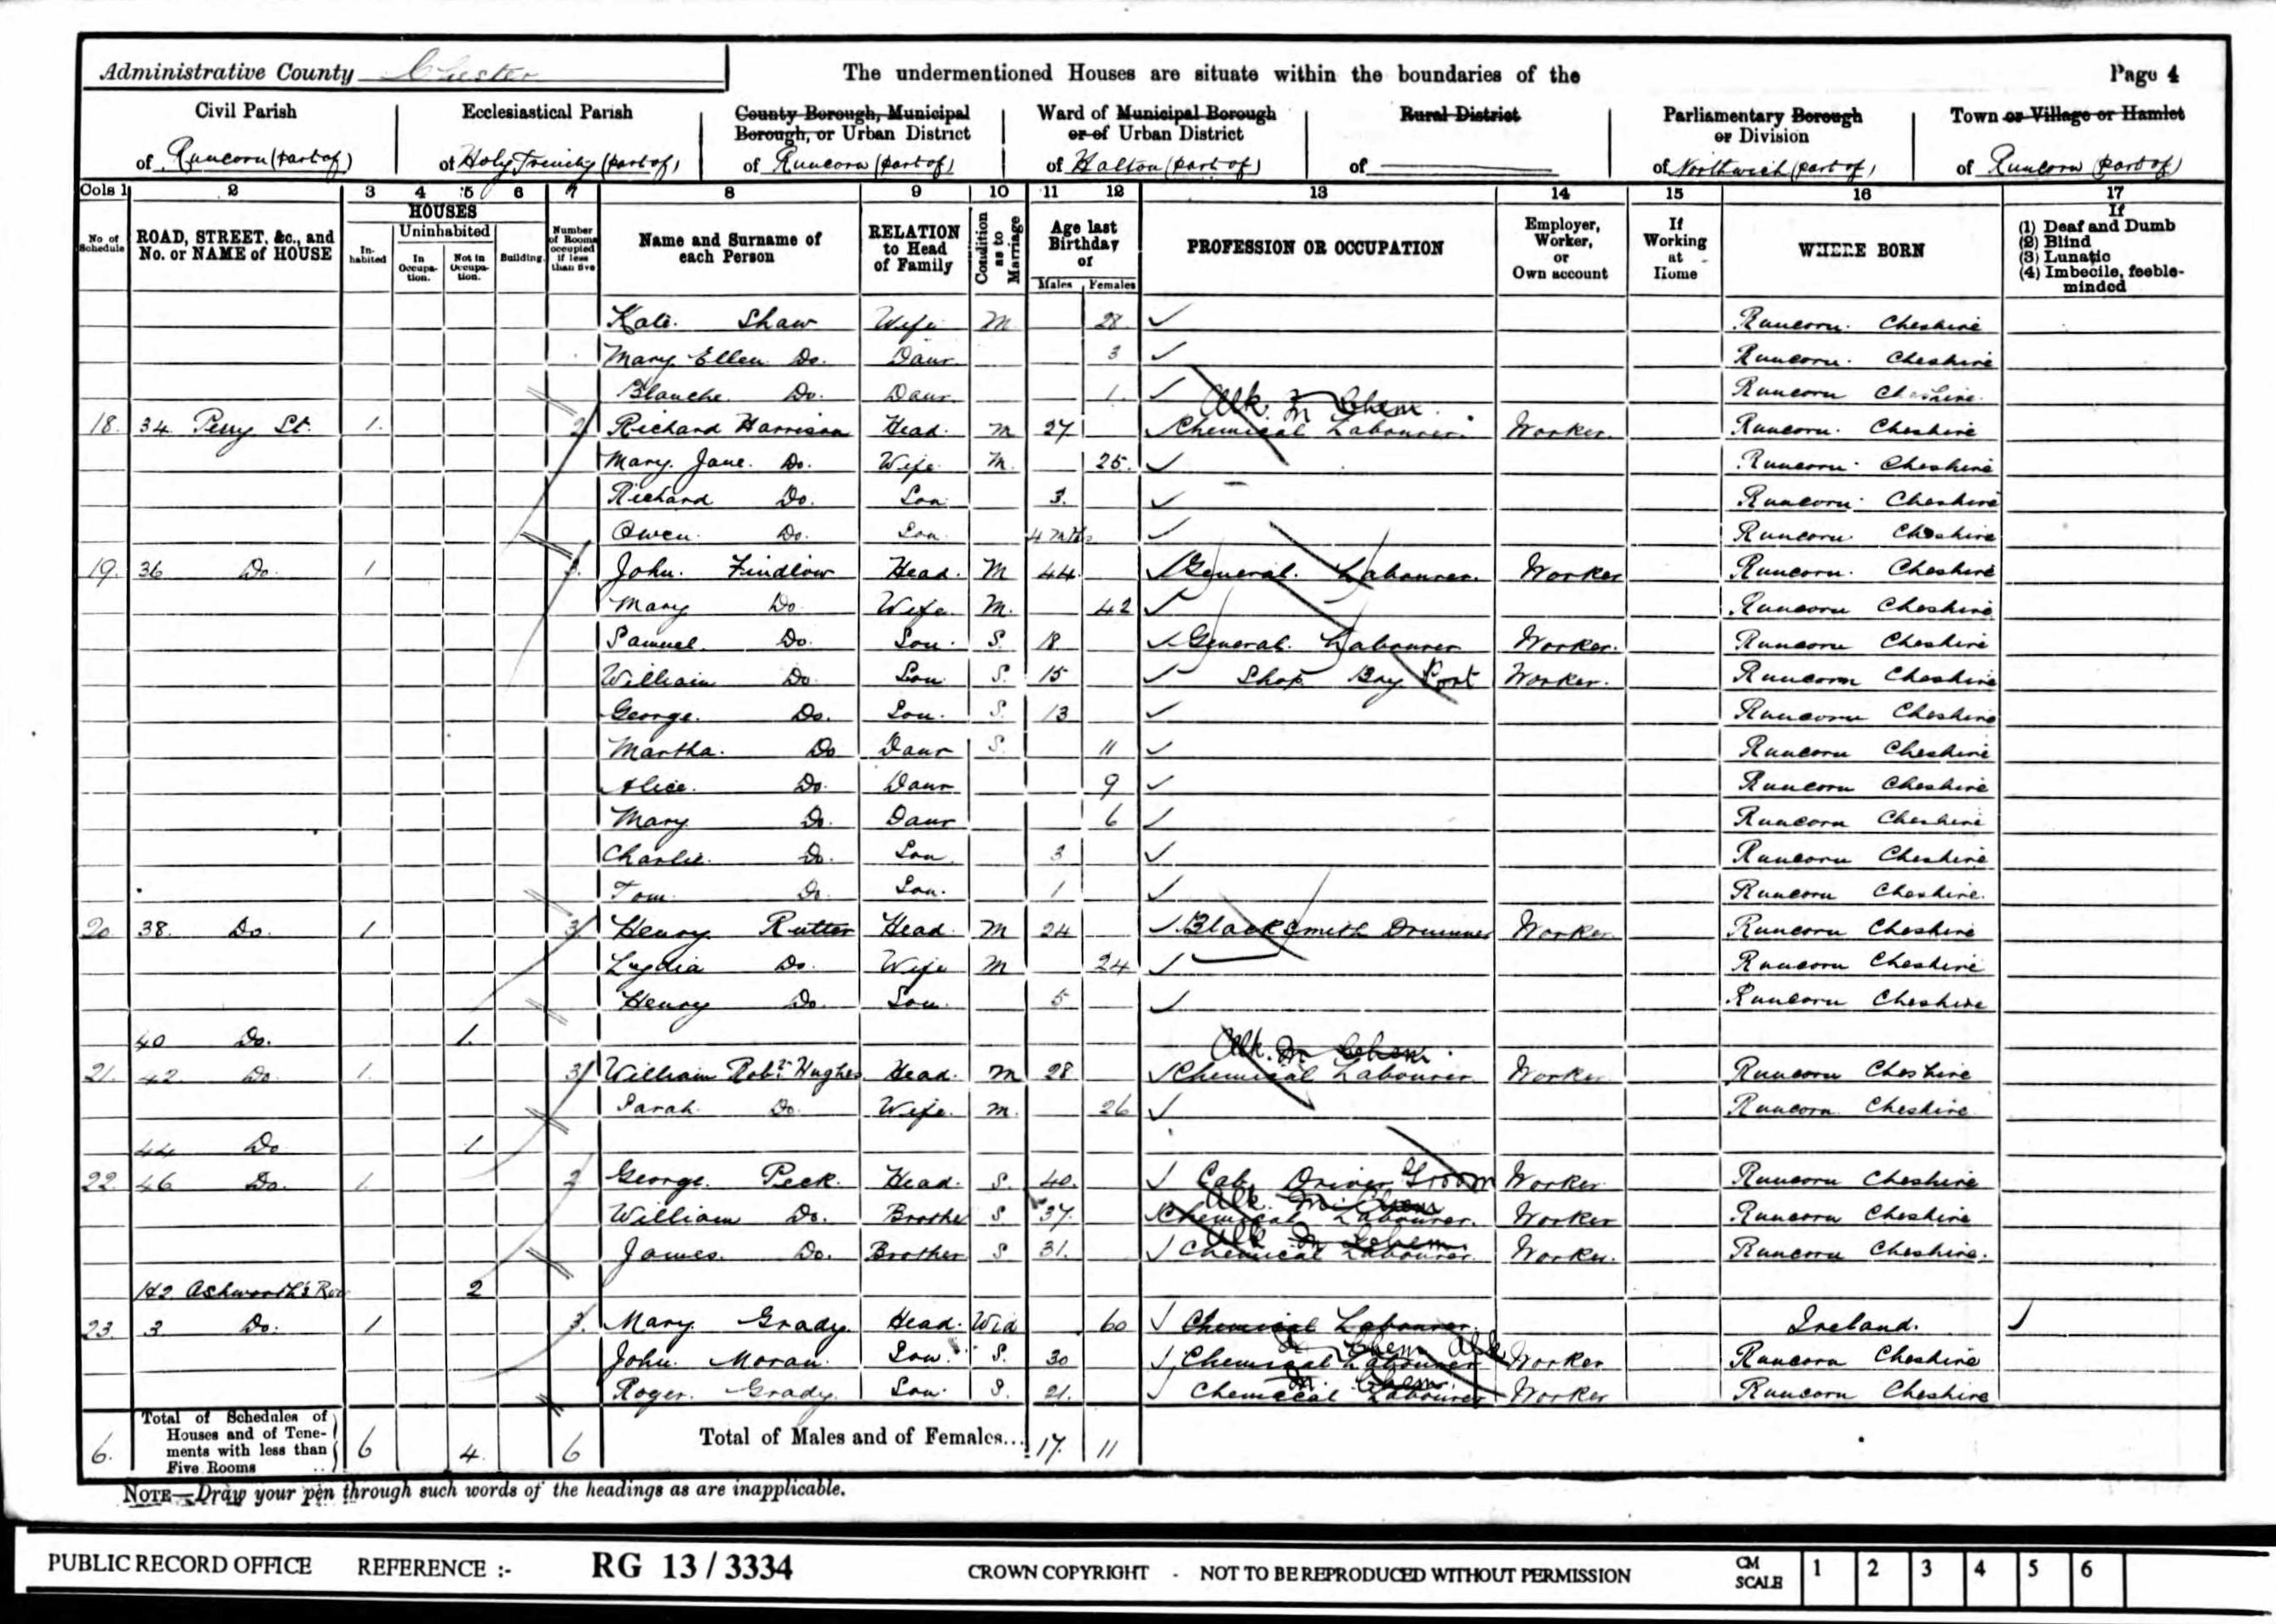 Administrative County Chester
The undermentioned Houses are situate within the boundaries of the
Page 4
Civil Parish
of Runcorn (part of)
Ecclesiastical Parish
of Holy Trinity (part of)
County Borough, Municipal
Borough, or Urban District
of Runcorn (part of)
Ward of Municipal Borough
or of Urban District
of Halton (part of)
Rural District
of
Parliamentary Borough
or Division
of Northwich (part of)
Town or Village or Hamlet
of Runcorn (part of)
Cols 1 2 3 4 5 6 7 8 9 10 11 12 13 14 15 16 17
No. of Schedule
ROAD, STREET, &c., and
No. or NAME of HOUSE
HOUSES
In-habited
Uninhabited
In Occupa-tion.
Not in Occupa-tion.
Building.
Number of Rooms occupied if less than five
Name and Surname of
each Person
RELATION
to Head
of Family
Condition as to Marriage
Age last
Birthday
of
Males Females
PROFESSION OR OCCUPATION
Employer,
Worker,
or
Own account
If
Working
at
Home
WHERE BORN
If
(1) Deaf and Dumb
(2) Blind
(3) Lunatic
(4) Imbecile, feeble-
minded
Kate. Shaw Wife M 28 Runcorn. Cheshire
Mary Ellen Do. Daur 3 Runcorn. Cheshire
Blanche Do. Daur. 1. Runcorn Cheshire
Alk. M Chem.
18. 34 Percy St. 1. 2 Richard Harrison Head. M 27 Chemical Labourer. Worker. Runcorn. Cheshire
Mary Jane. Do. Wife M. 25. Runcorn. Cheshire
Richard Do. Son 3. Runcorn. Cheshire
Owen. Do. Son 4 mths Runcorn. Cheshire
19. 36 Do. 1 John. Findlow Head. M 44. General. Labourer. Worker Runcorn. Cheshire
Mary Do Wife. M. 42 Runcorn Cheshire
Samuel. Do. Son. S. 18 General. Labourer Worker. Runcorn Cheshire
William Do. Son S. 15 Shop Boy Port Worker. Runcorn Cheshire
George. Do. Son. S. 13 Runcorn Cheshire
Martha. Do Daur S. 11 Runcorn Cheshire
Alice. Do. Daur 9 Runcorn Cheshire
Mary Do. Daur 6 Runcorn Cheshire
Charlie. Do. Son 3 Runcorn Cheshire
Tom Do. Son. 1 Runcorn Cheshire.
20. 38. Do. 1 3 Henry Rutter Head M 24 Blacksmith Worker Runcorn Cheshire
Lydia Do. Wife M 24 Runcorn Cheshire
Henry Do. Son. 5 Runcorn Cheshire
40 Do. 1.
Alk. M Chem.
21. 42. Do. 1. 3 William Robt. Hughes Head. M 28 Chemical Labourer Worker Runcorn Cheshire
Sarah. Do. Wife. M. 26 Runcorn. Cheshire
44 Do 1
22. 46 Do. 1. 2 George. Peck. Head. S. 40. Cab Driver Groom Worker Runcorn Cheshire
Alk. M Chem
William Do. Brother S 37. Chemical Labourer. Worker Runcorn Cheshire
Alk M Chem
James. Do. Brother S 31. Chemical Labourer. Worker. Runcorn Cheshire.
1&2 Ashworth's Row 2
23. 3 Do. 1 3. Mary Grady. Head. Wid 60 Chemical Labourer. Ireland.
Chem Alk
John. Moran. Son. S. 30 Chemical Labourer Worker Runcorn Cheshire
M. Chem.
Roger. Grady. Son. S. 21. Chemical Labourer Worker Runcorn Cheshire
6. Total of Schedules of
Houses and of Tene-
ments with less than
Five Rooms 6 4 6
Total of Males and of Females... 17 11
NOTE—Draw your pen through such words of the headings as are inapplicable.
PUBLIC RECORD OFFICE REFERENCE :- RG 13 / 3334 CROWN COPYRIGHT - NOT TO BE REPRODUCED WITHOUT PERMISSION CM SCALE 1 2 3 4 5 6